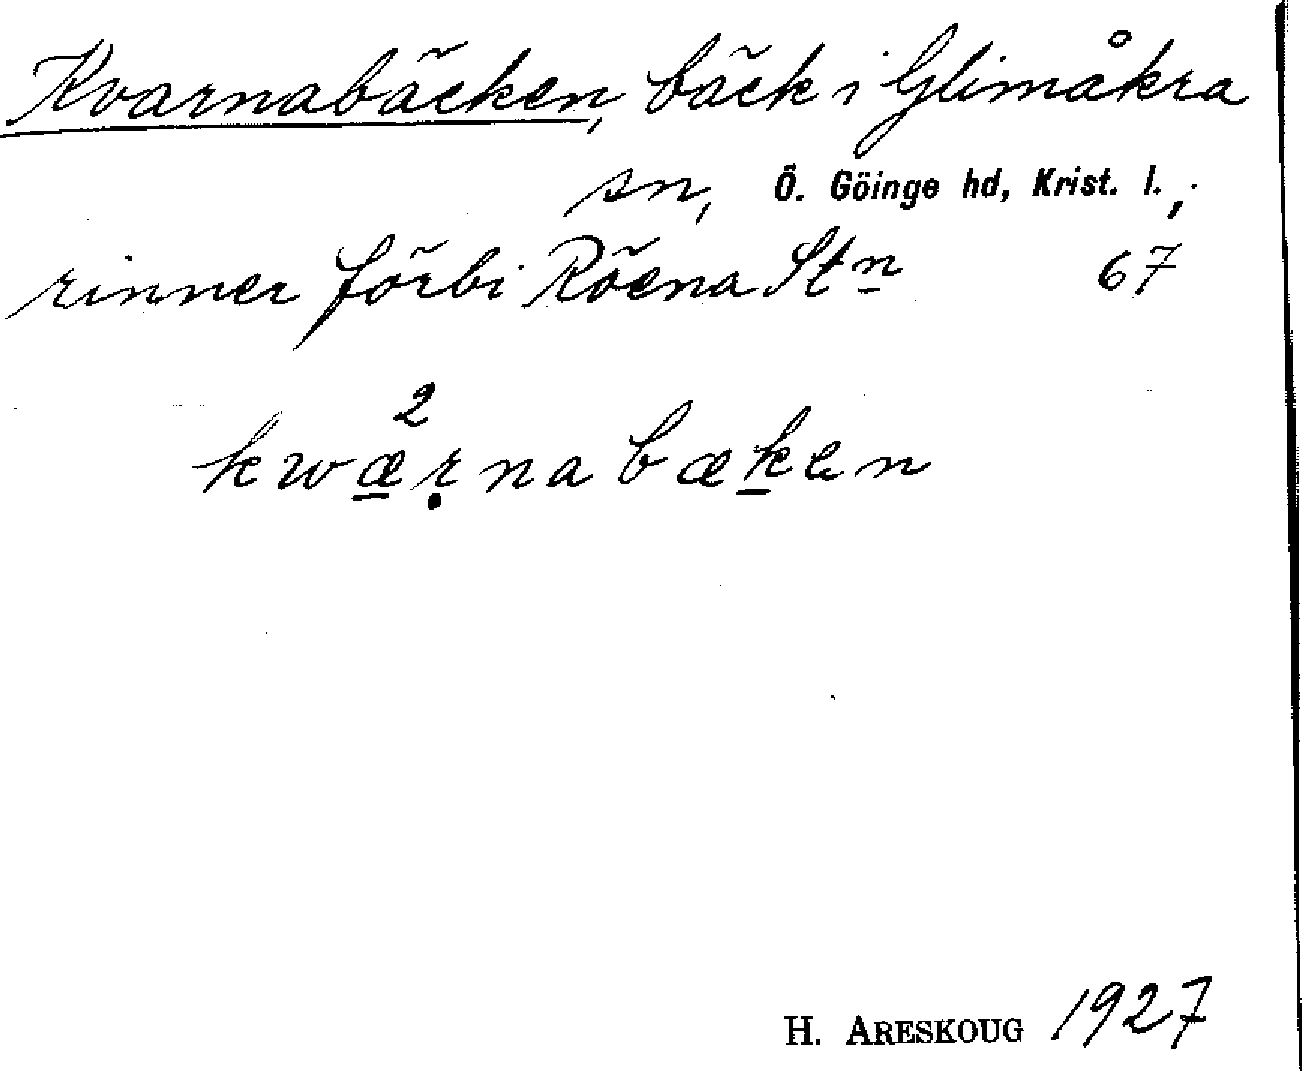 Kvarnabäcken, bäck i Glimåkra
sn, Ö. Göinge hd, Krist. l.,
rinner förbi Röena Stn 67
2
kwærnabæken
H. ARESKOUG 1927